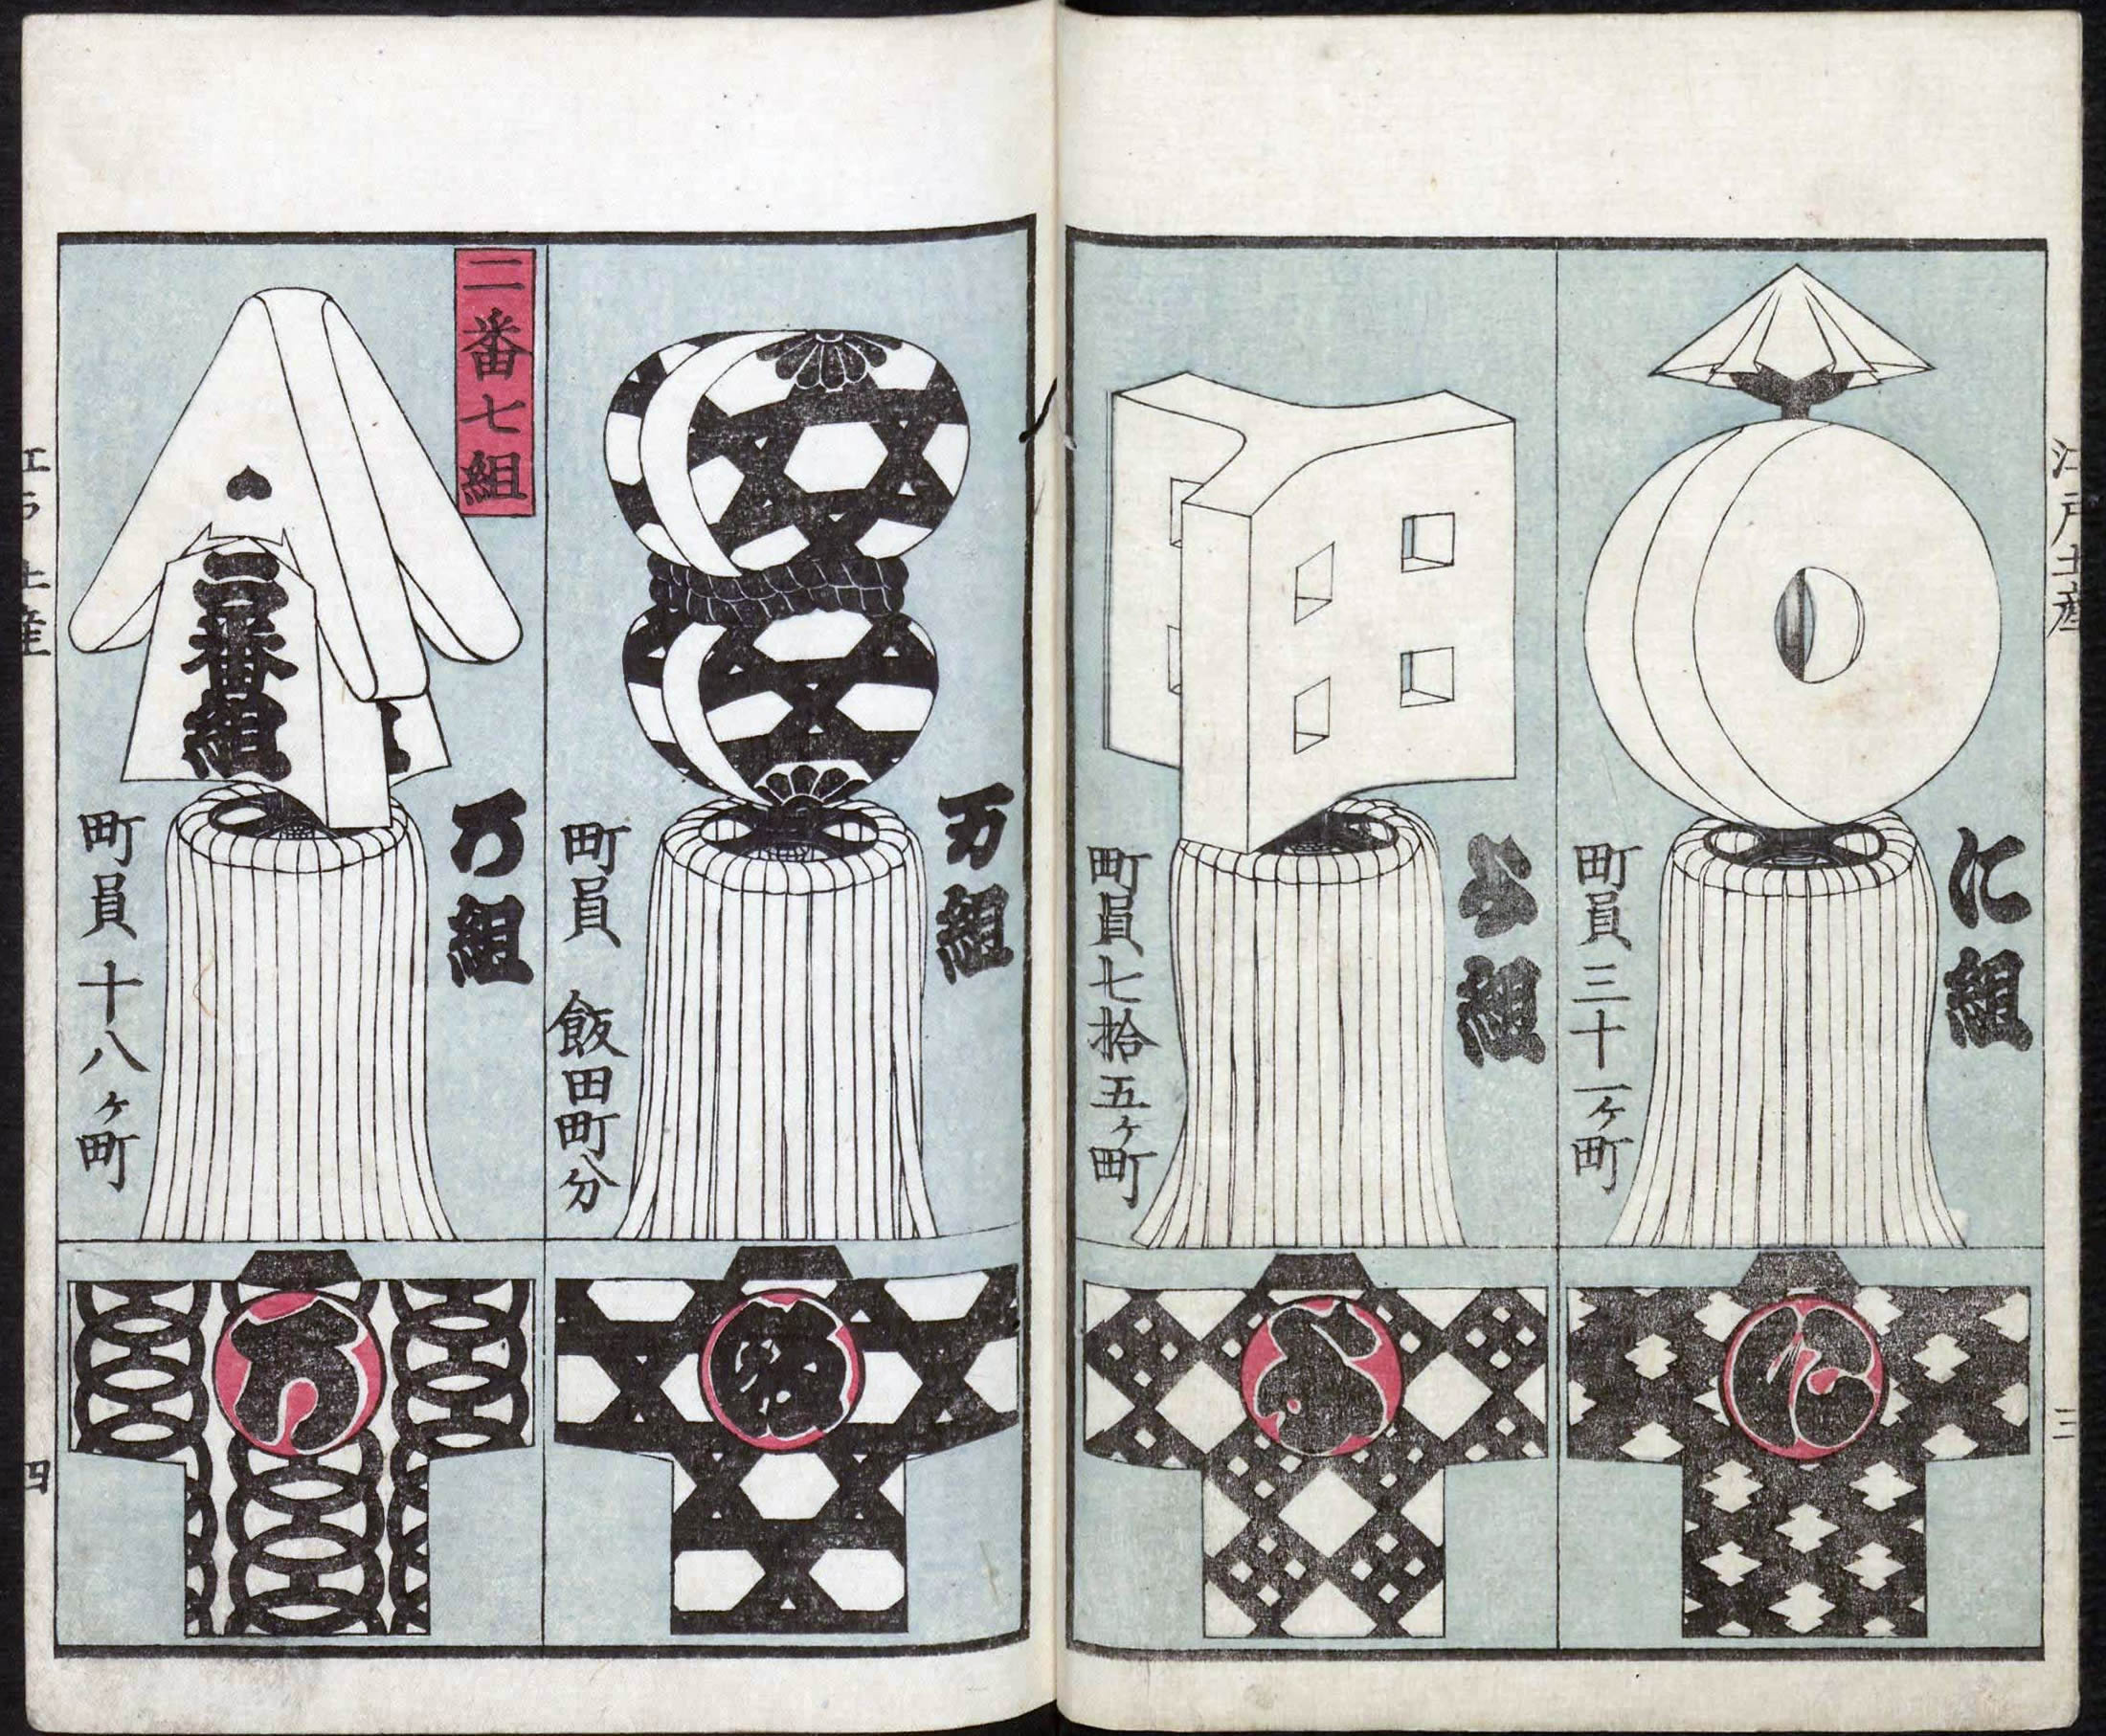 江戸土産
三
に組
町員三十一ヶ町
よ組
町員七拾五ヶ町
万組
町員 飯田町分
二番七組
二番組
ろ組
町員十八ヶ町
四